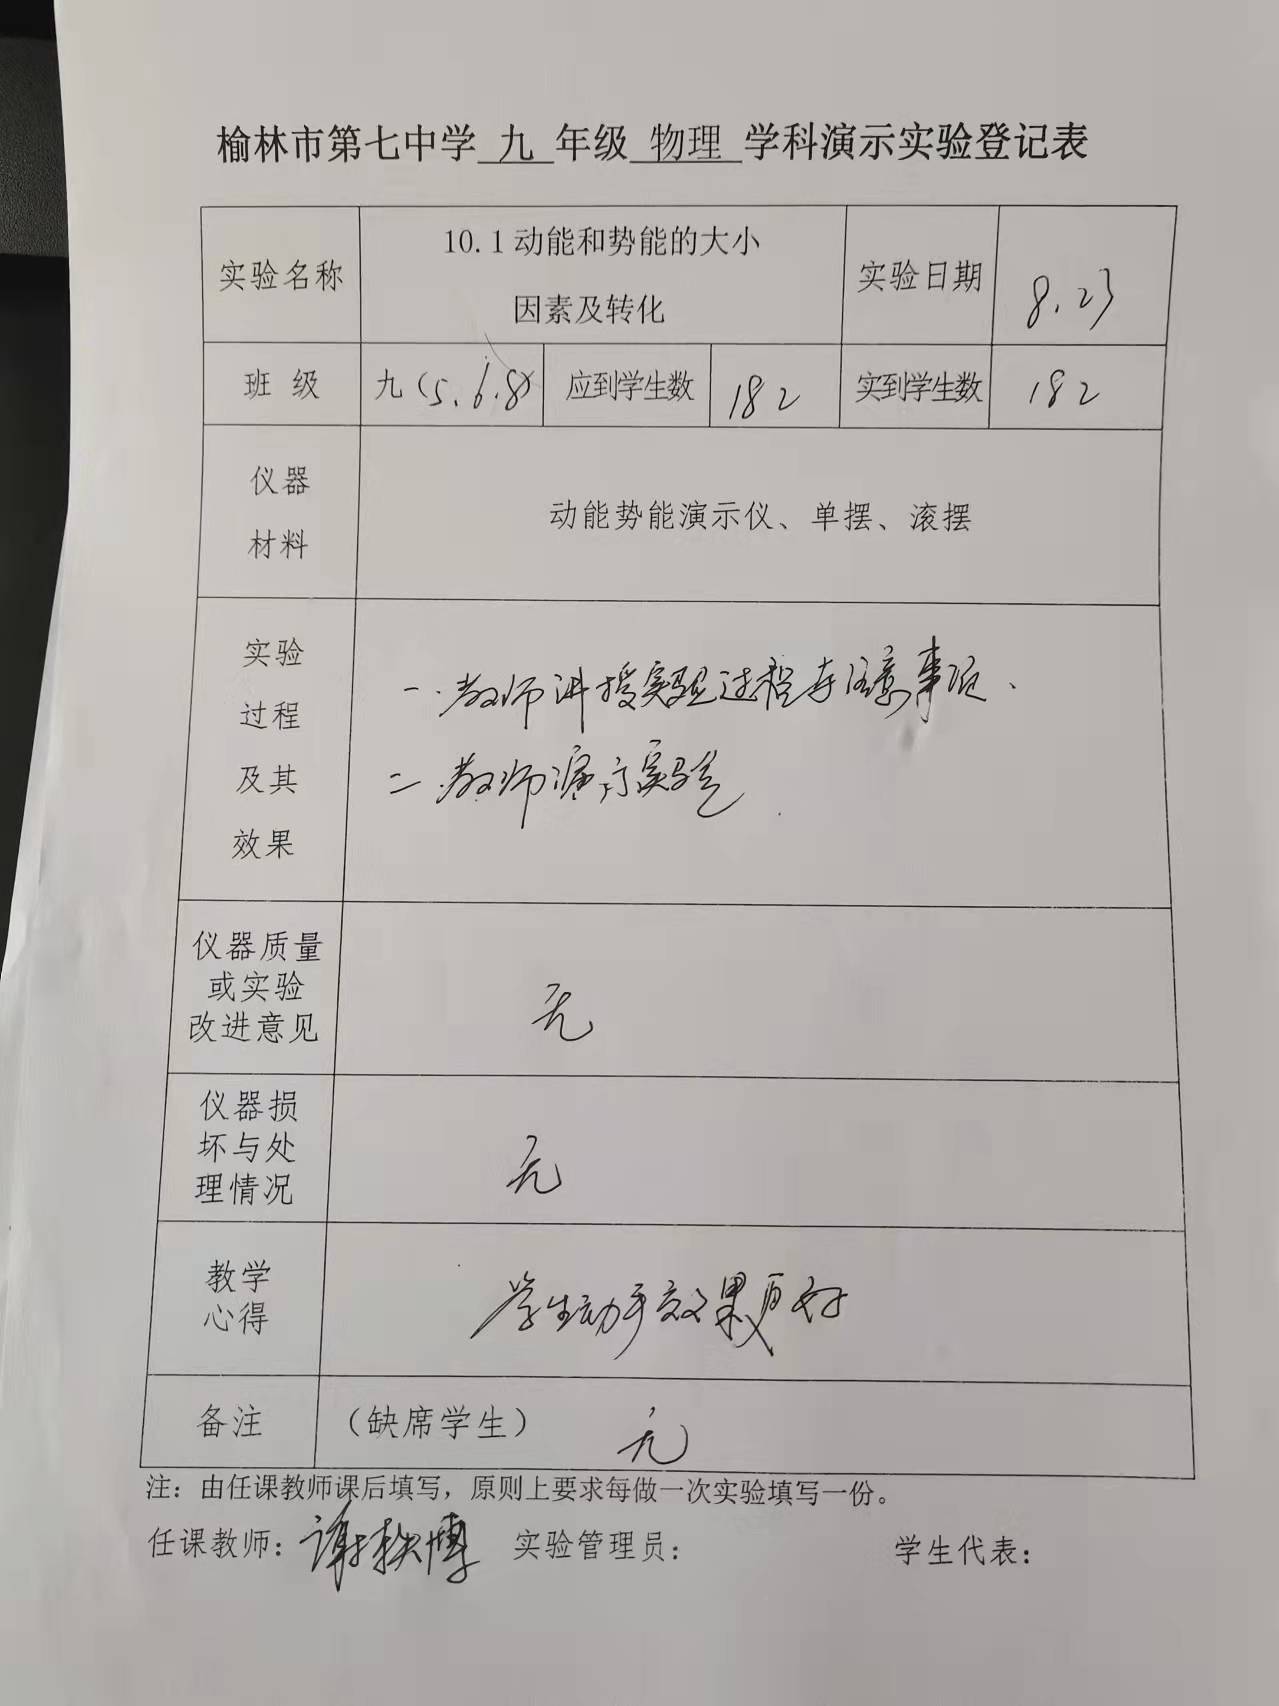 榆林市第七中学 九 年级 物理 学科演示实验登记表
实验名称
10.1动能和势能的大小
因素及转化
实验日期
8.23
班 级
九(5.6.8)
应到学生数
182
实到学生数
182
仪器
材料
动能势能演示仪、单摆、滚摆
实验
过程
及其
效果
一.教师讲授实验过程与注意事项.
二.教师演示实验
仪器质量
或实验
改进意见
无
仪器损
坏与处
理情况
无
教学
心得
学生动手效果更好
备注
(缺席学生) 无
注：由任课教师课后填写，原则上要求每做一次实验填写一份。
任课教师：谢 博 实验管理员： 学生代表：